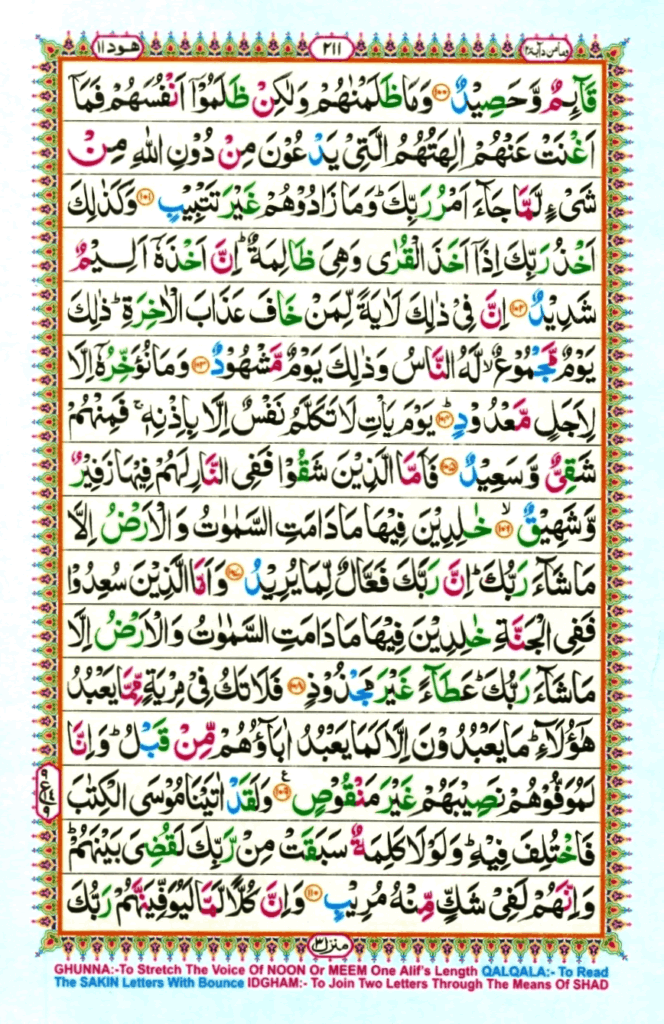 هود ١١
٢١١
ومامن دآبة ١٢
قَآئِمٌ وَّحَصِيْدٌ ﴿١٠٠﴾ وَمَا ظَلَمْنٰهُمْ وَلٰكِنْ ظَلَمُوْٓا اَنْفُسَهُمْ فَمَآ
اَغْنَتْ عَنْهُمْ اٰلِهَتُهُمُ الَّتِيْ يَدْعُوْنَ مِنْ دُوْنِ اللّٰهِ مِنْ
شَيْءٍ لَّمَّا جَآءَ اَمْرُ رَبِّكَ ؕ وَمَا زَادُوْهُمْ غَيْرَ تَتْبِيْبٍ ﴿١٠١﴾ وَكَذٰلِكَ
اَخْذُ رَبِّكَ اِذَآ اَخَذَ الْقُرٰى وَهِيَ ظَالِمَةٌ ؕ اِنَّ اَخْذَهٗٓ اَلِيْمٌ
شَدِيْدٌ ﴿١٠٢﴾ اِنَّ فِيْ ذٰلِكَ لَاٰيَةً لِّمَنْ خَافَ عَذَابَ الْاٰخِرَةِ ؕ ذٰلِكَ
يَوْمٌ مَّجْمُوْعٌ ۙ لَّهُ النَّاسُ وَذٰلِكَ يَوْمٌ مَّشْهُوْدٌ ﴿١٠٣﴾ وَمَا نُؤَخِّرُهٗٓ اِلَّا
لِاَجَلٍ مَّعْدُوْدٍ ؕ ﴿١٠٤﴾ يَوْمَ يَاْتِ لَا تَكَلَّمُ نَفْسٌ اِلَّا بِاِذْنِهٖ ۚ فَمِنْهُمْ
شَقِيٌّ وَّسَعِيْدٌ ﴿١٠٥﴾ فَاَمَّا الَّذِيْنَ شَقُوْا فَفِي النَّارِ لَهُمْ فِيْهَا زَفِيْرٌ
وَّشَهِيْقٌ ۙ ﴿١٠٦﴾ خٰلِدِيْنَ فِيْهَا مَا دَامَتِ السَّمٰوٰتُ وَالْاَرْضُ اِلَّا
مَا شَآءَ رَبُّكَ ؕ اِنَّ رَبَّكَ فَعَّالٌ لِّمَا يُرِيْدُ ﴿١٠٧﴾ وَاَمَّا الَّذِيْنَ سُعِدُوْا
فَفِي الْجَنَّةِ خٰلِدِيْنَ فِيْهَا مَا دَامَتِ السَّمٰوٰتُ وَالْاَرْضُ اِلَّا
مَا شَآءَ رَبُّكَ ؕ عَطَآءً غَيْرَ مَجْذُوْذٍ ﴿١٠٨﴾ فَلَا تَكُ فِيْ مِرْيَةٍ مِّمَّا يَعْبُدُ
هٰٓؤُلَآءِ ؕ مَا يَعْبُدُوْنَ اِلَّا كَمَا يَعْبُدُ اٰبَآؤُهُمْ مِّنْ قَبْلُ ؕ وَاِنَّا
لَمُوَفُّوْهُمْ نَصِيْبَهُمْ غَيْرَ مَنْقُوْصٍ ﴿١٠٩﴾ وَلَقَدْ اٰتَيْنَا مُوْسَى الْكِتٰبَ
فَاخْتُلِفَ فِيْهِ ؕ وَلَوْلَا كَلِمَةٌ سَبَقَتْ مِنْ رَّبِّكَ لَقُضِيَ بَيْنَهُمْ ؕ
وَاِنَّهُمْ لَفِيْ شَكٍّ مِّنْهُ مُرِيْبٍ ﴿١١٠﴾ وَاِنَّ كُلًّا لَّمَّا لَيُوَفِّيَنَّهُمْ رَبُّكَ
منزل ٣
GHUNNA:-To Stretch The Voice Of NOON Or MEEM One Alif's Length QALQALA:- To Read
The SAKIN Letters With Bounce IDGHAM:- To Join Two Letters Through The Means Of SHAD